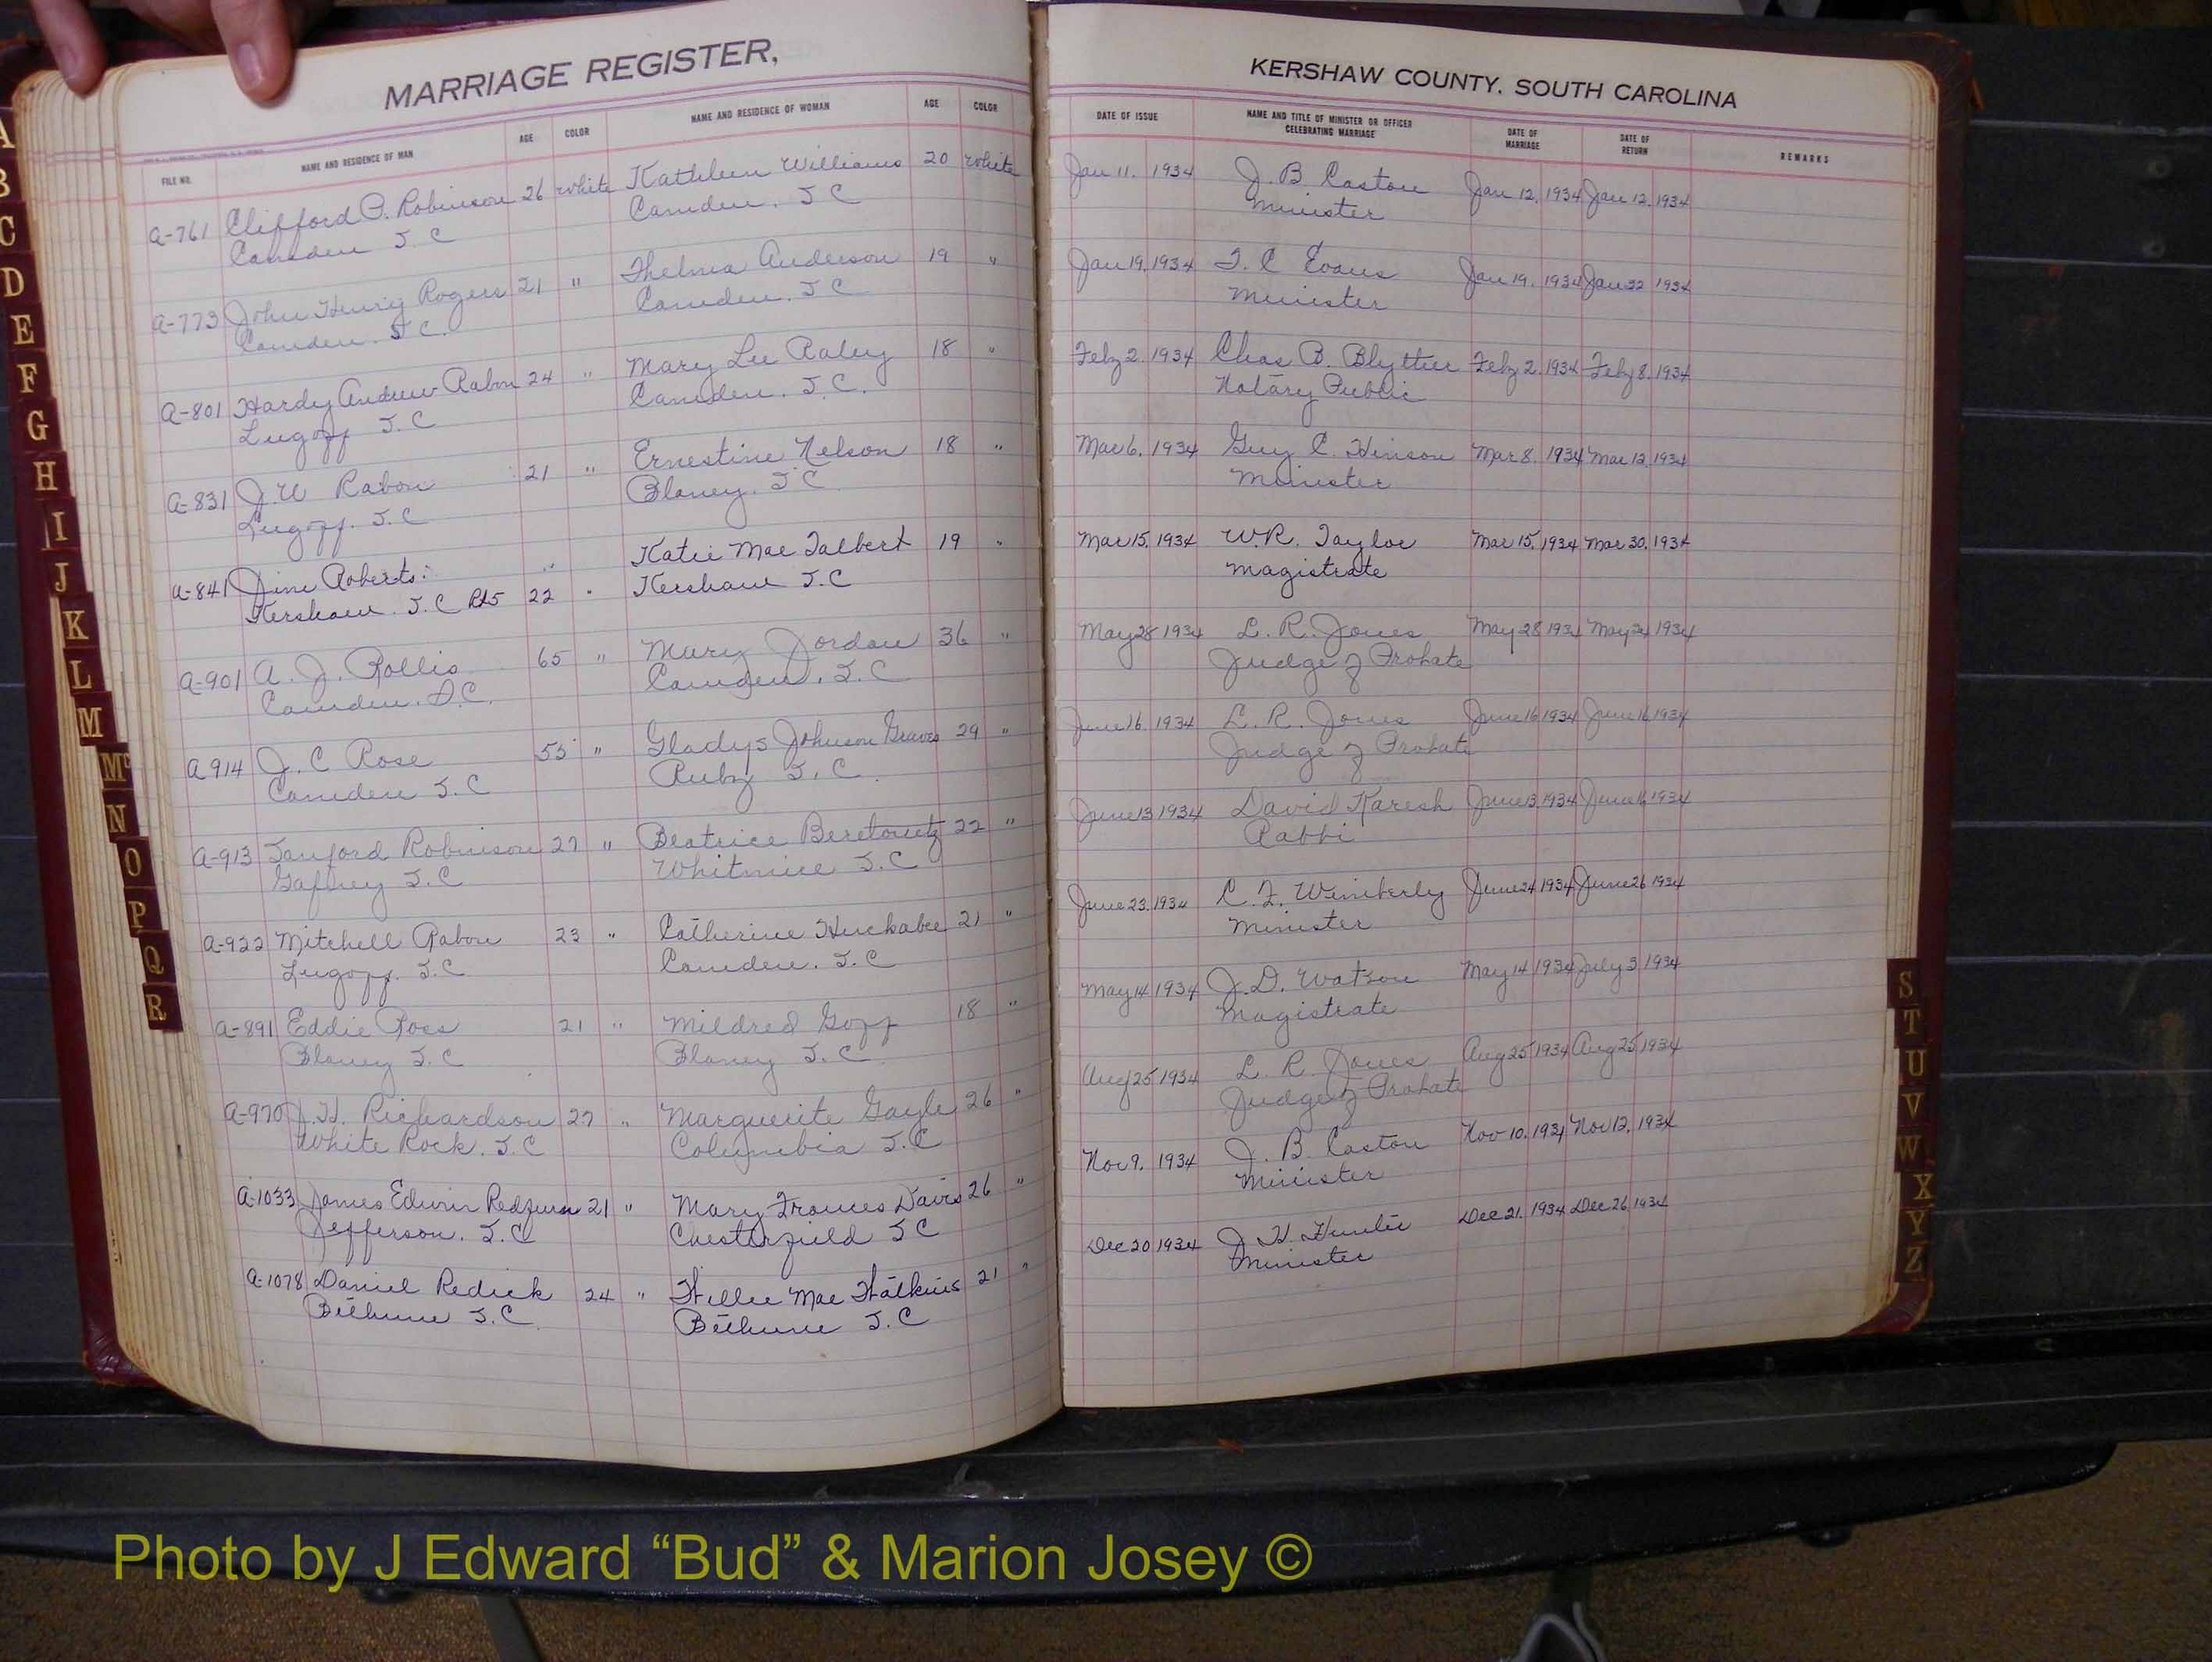 MARRIAGE REGISTER,
FILE NO. NAME AND RESIDENCE OF MAN AGE COLOR NAME AND RESIDENCE OF WOMAN AGE COLOR
A-761 Clifford P. Robinson 26 white Kathleen Williams 20 white
Camden S.C Camden, S C
A-773 John Henry Rogers 21 " Thelma Anderson 19 "
Camden. S C. Camden, S C
A-801 Hardy Andrew Rabon 24 " Mary Lee Raley 18 "
Lugoff S.C Camden, S.C.
A-831 J.W Rabon 21 " Ernestine Nelson 18 "
Lugoff. S.C Blaney, S C
A-841 Jim Roberts " Katie Mae Talbert 19 "
Kershaw. S.C Rt5 22 " Kershaw S.C
A-901 A. J. Rollis 65 " Mary Jordan 36 "
Camden, S.C. Camden, S.C
A 914 J. C Rose 55 " Gladys Johnson Graves 29 "
Camden S.C Ruby S.C.
A-913 Sanford Robinson 27 " Beatrice 22 "
Gaffney S.C Whitmire S.C
A-922 Mitchell Rabon 23 " Catherine Huckabee 21 "
Lugoff. S.C Camden. S.C
A-891 Eddie Ross 21 " Mildred Goff 18 "
Blaney S.C Blaney S.C
A-970 J.H. Richardson 27 " Marguerite Gayle 26 "
White Rock. S.C Columbia S.C
A-1033 James Edwin 21 " Mary Frances Davis 26 "
Jefferson. S.C Chesterfield S C
A-1078 Daniel Redick 24 " Willie Mae Watkins 21 "
Bethune S.C. Bethune S.C
KERSHAW COUNTY. SOUTH CAROLINA
DATE OF ISSUE NAME AND TITLE OF MINISTER OR OFFICER CELEBRATING MARRIAGE DATE OF MARRIAGE DATE OF RETURN REMARKS
Jan 11. 1934 J. B. Caston Jan 12, 1934 Jan 12, 1934
Minister
Jan 19, 1934 T. C Evans Jan 19, 1934 Jan 22 1934
Minister
Feby 2. 1934 Chas B. Feby 2. 1934 Feby 8. 1934
Notary Public
Mar 6, 1934 Guy C. Hinson Mar 8. 1934 Mar 12, 1934
Minister
Mar 15, 1934 W.R. Taylor Mar 15, 1934 Mar 30, 1934
Magistrate
May 28 1934 L. R. Jones May 28 1934 May 1934
Judge of Probate
June 16 1934 L. R. Jones June 16 1934 June 16 1934
Judge of Probate
June 13 1934 David Karesh June 13 1934 June 16 1934
Rabbi
June 23. 1934 C. F. Wimberly June 24 1934 June 26 1934
Minister
May 14 1934 J. D. Watson May 14 1934 July 3 1934
Magistrate
Aug 25 1934 L. R. Jones Aug 25 1934 Aug 25 1934
Judge of Probate
Nov 9. 1934 J. B. Caston Nov 10. 1934 Nov 12, 1934
Minister
Dec 20 1934 J H. Hunter Dec 21. 1934 Dec 26, 1934
Minister
A
B
C
D
E
F
G
H
I
J
K
L
M
Mc
N
O
P
Q
R
S
T
U
V
W
X
Y
Z
Photo by J Edward “Bud” & Marion Josey ©